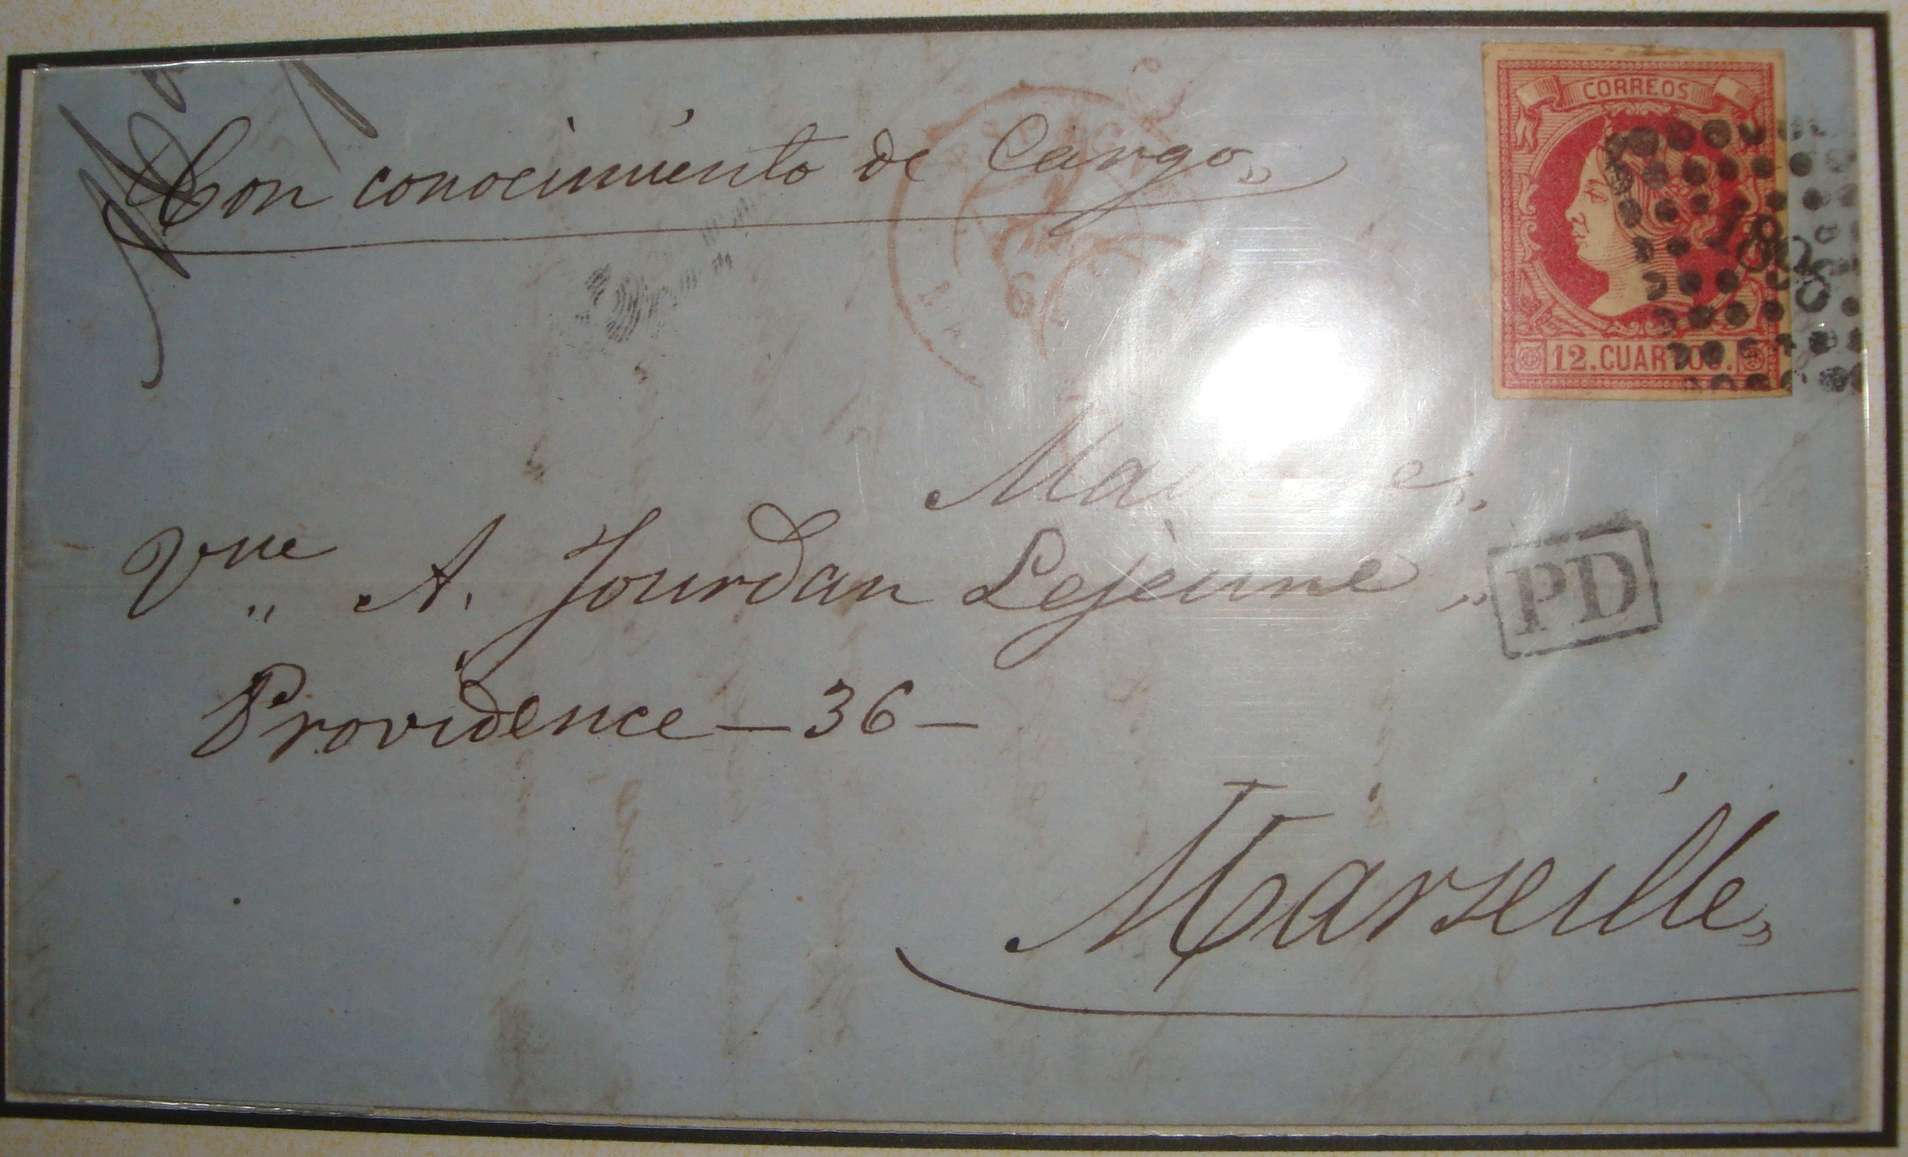 Con conocimiento de Cargo„
CORREOS
1896
12.CUARTOS.
Vve A. Jourdan Lejeune „
PD
Providence — 36 —
Marseille„